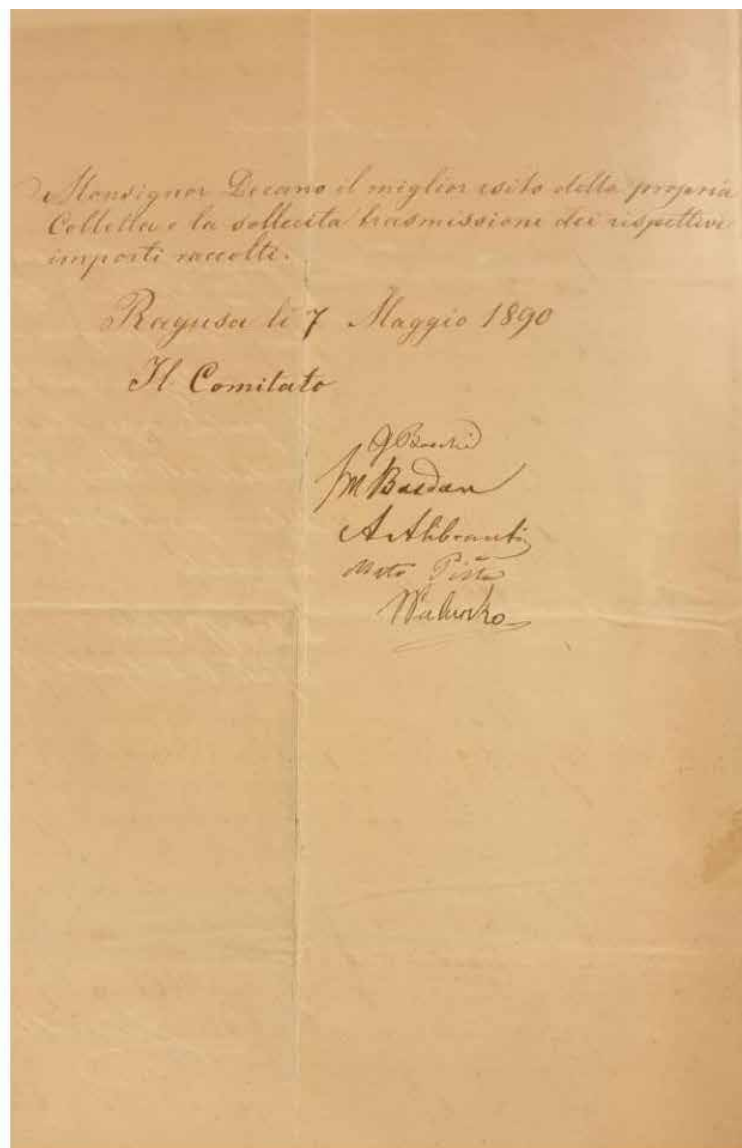 Monsignor Decano il miglior esito della propria
Colletta e la sollecita trasmissione dei rispettivi
importi raccolti.
Ragusa li 7 Maggio 1890
Il Comitato
M Basdan
A Alibranti
Mato Pišta